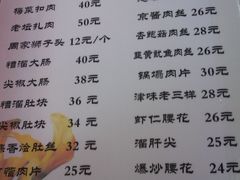 梅菜扣肉 40元
老坛扎肉 50元
周家狮子头 12元/个
熘大肠 40元
尖椒大肠 38元
糟溜肚块 36元
尖椒肚块 34元
香烩肚丝 32元
嘴肉片 25元
京酱肉丝 26元
杏鲍菇肉丝 28元
韭黄鱿鱼肉丝 26元
锅塌肉片 30元
津味老三样 28元
虾仁腰花 26元
溜肝尖 25元
爆炒腰花 24元